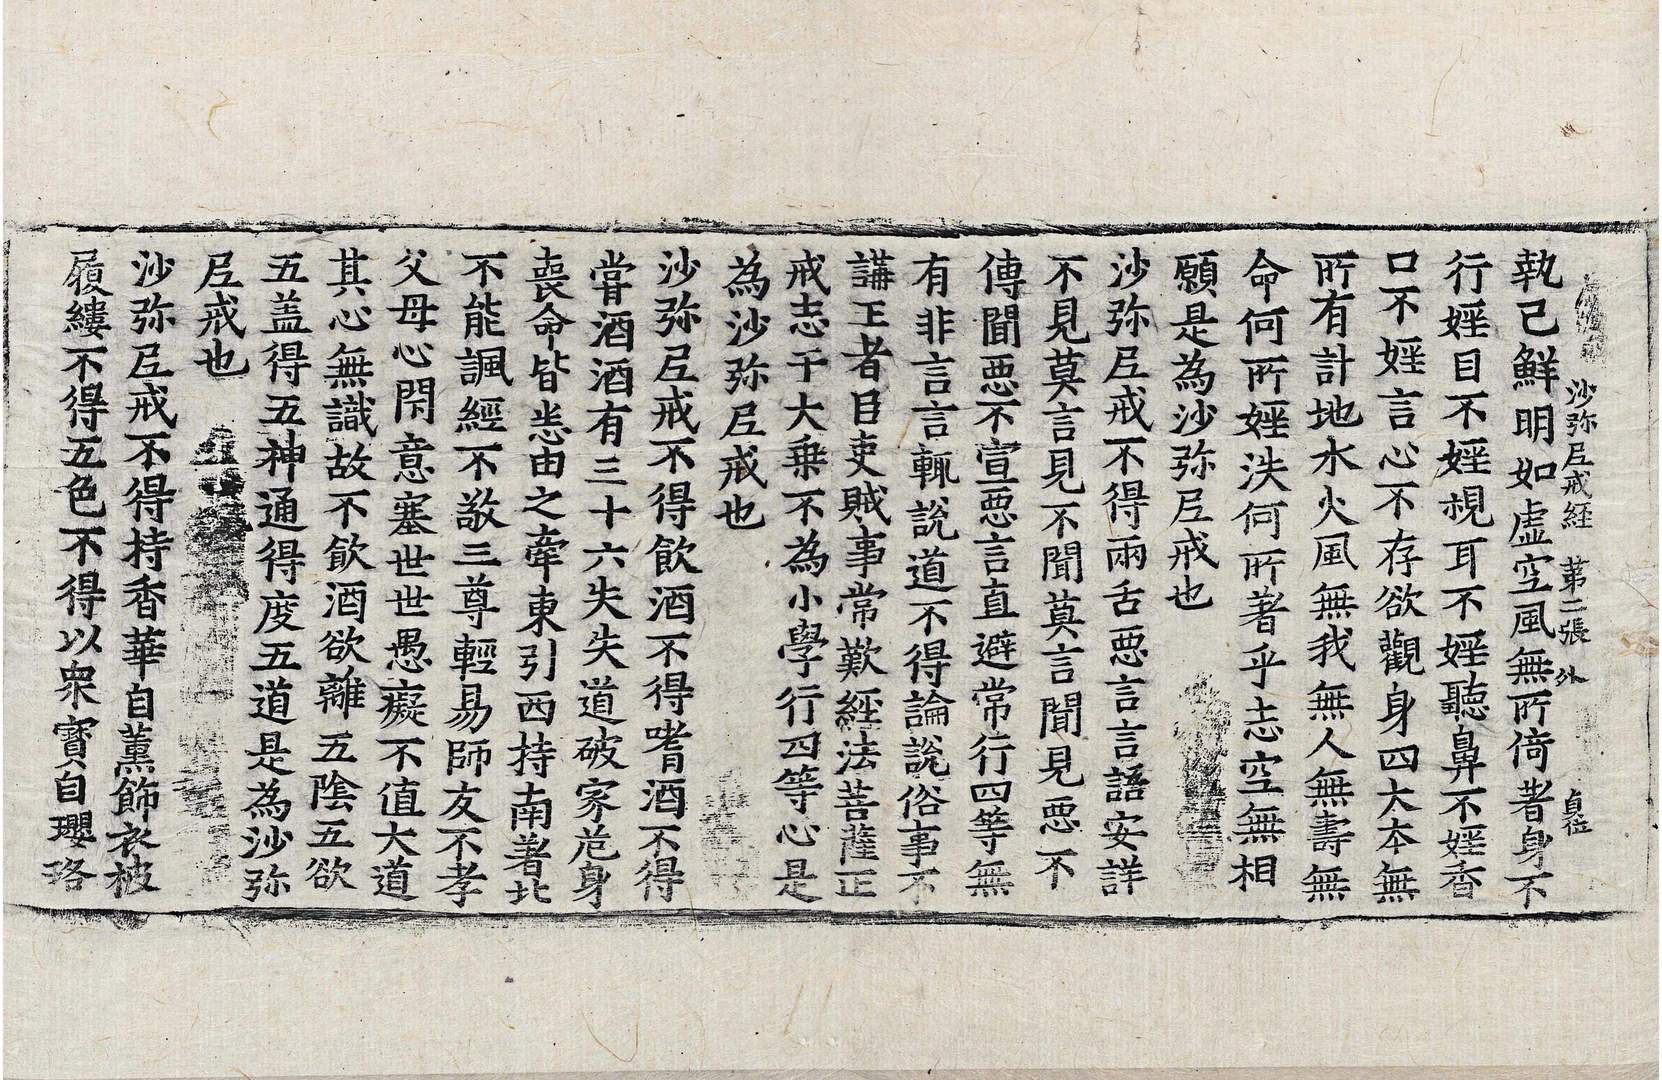 沙弥尼戒経 第二張 外 貞位
執己鮮明如虚空風無所倚著身不
行婬目不婬視耳不婬聽鼻不婬香
口不婬言心不存欲觀身四大本無
所有計地水火風無我無人無壽無
命何所婬泆何所著乎志空無相
願是為沙弥尼戒也
沙弥尼戒不得兩舌惡言言語安詳
不見莫言見不聞莫言聞見惡不
傳聞惡不宣惡言直避常行四等無
有非言言輒說道不得論說俗事不
講王者臣吏賊事常歎經法菩薩正
戒志于大乗不為小學行四等心是
為沙弥尼戒也
沙弥尼戒不得飲酒不得嗜酒不得
甞酒酒有三十六失失道破家危身
喪命皆悉由之牽東引西持南著北
不能諷經不敬三尊輕易師友不孝
父母心閇意塞世世愚癡不值大道
其心無識故不飲酒欲離五陰五欲
五盖得五神通得度五道是為沙弥
尼戒也
沙弥尼戒不得持香華自薰飾衣被
履縷不得五色不得以衆寳自瓔珞